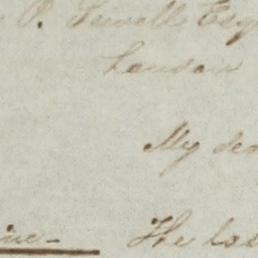 P. Sewell Esq
London
My dea
The los